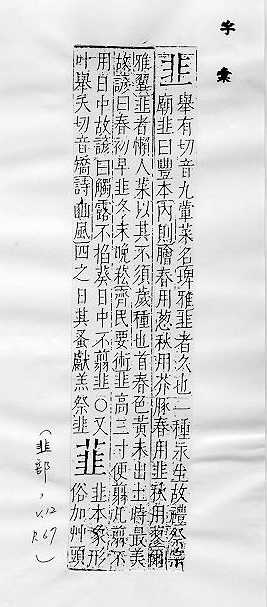 字彙
韭
舉有切音九葷菜名埤雅韭者久也一種永生故禮祭宗
廟韭曰豐本內則膾春用葱秋用芥豚春用韭秋用蓼爾
雅翼韭者懶人菜以其不須歲種也首春色黃未出土時最美
故諺曰春初早韭冬末晚菘齊民要術韭高三寸便翦凡翦不
用日中故諺曰觸露不掐葵日中不翦韭○又
叶舉夭切音矯詩豳風四之日其蚤獻羔祭韭
韮
韭本象形
俗加艸頭
(韭部, v.12
P.67)